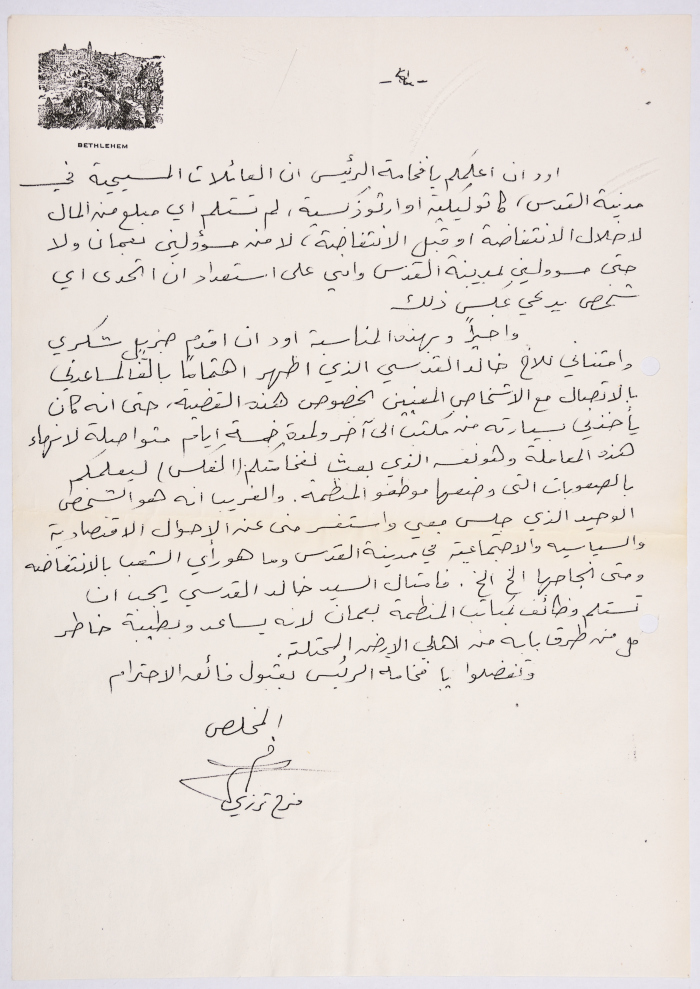 BETHLEHEM
- ٤ -
اود ان اعلمكم يا فخامة الرئيس ان العائلات المسيحية في
مدينة القدس، كاثوليكية او ارثوذكسية، لم تستلم اي مبلغ من المال
لا خلال الانتفاضة او قبل الانتفاضة، لا من مسؤولين بعمان ولا
حتى مسؤولين بمدينة القدس واني على استعداد ان اتحدى اي
شخص يدعي عكس ذلك
واخيراً وبهذه المناسبة اود ان اقدم جزيل شكري
وامتناني للاخ خالد القدسي الذي اظهر اهتماماً بالغاً لمساعدتي
بالاتصال مع الاشخاص المعنيين بخصوص هذه القضية، حتى انه كان
يأخذني بسيارته من مكتب الى آخر ولمدة خمسة ايام متواصلة لانهاء
هذه المعاملة وهو نفسه الذي بعث لفخامتكم (الفكس) ليعلمكم
بالصعوبات التي وضعها موظفو المنظمة. والغريب انه هو الشخص
الوحيد الذي جلس معي واستفسر مني عن الاحوال الاقتصادية
والسياسية والاجتماعية في مدينة القدس وما هو رأي الشعب بالانتفاضه
ومتى انجاحها الخ الخ. فامثال السيد خالد القدسي يجب ان
تستلم وظائف بمكاتب المنظمة بعمان لانه يساعد وبطيبة خاطر
كل من طرق بابه من اهالي الارض المحتلة.
وتفضلوا يا فخامة الرئيس بقبول فائق الاحترام
المخلص
فرح ترزي